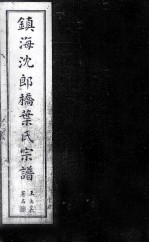 鎮海沈郎橋葉氏宗譜